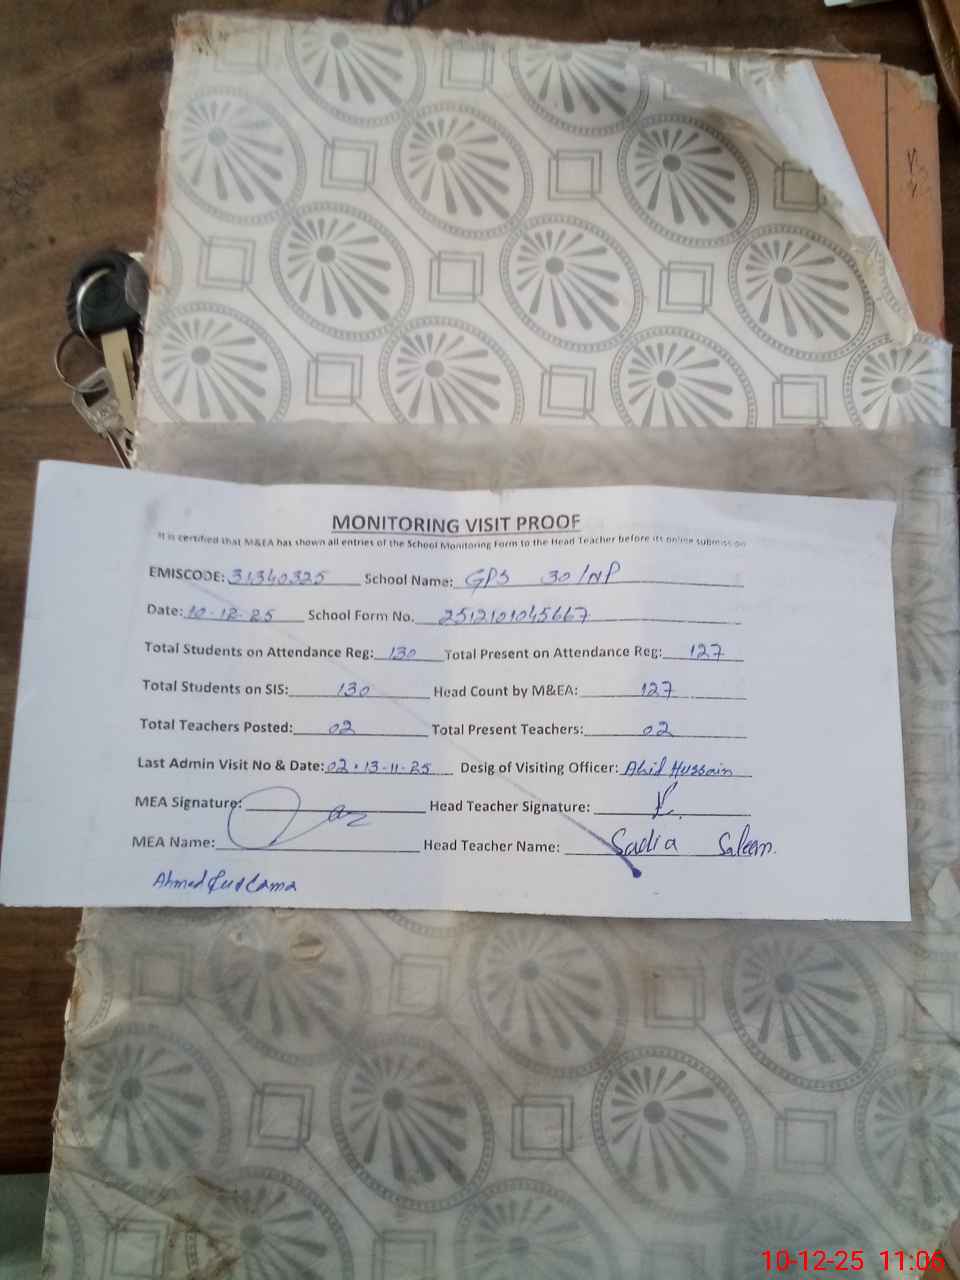 MONITORING VISIT PROOF
It is certified that M&EA has shown all entries of the School Monitoring Form to the Head Teacher before its online submission
EMISCODE: 31340325 School Name: GPS 30/NP
Date: 10-12-25 School Form No. 2512101045667
Total Students on Attendance Reg: 130 Total Present on Attendance Reg: 127
Total Students on SIS: 130 Head Count by M&EA: 127
Total Teachers Posted: 02 Total Present Teachers: 02
Last Admin Visit No & Date: 02 . 13-11-25 Desig of Visiting Officer: Abid Hussain
MEA Signature: Head Teacher Signature:
MEA Name: Head Teacher Name: Sadia Saleem.
Ahmed
10-12-25 11:06